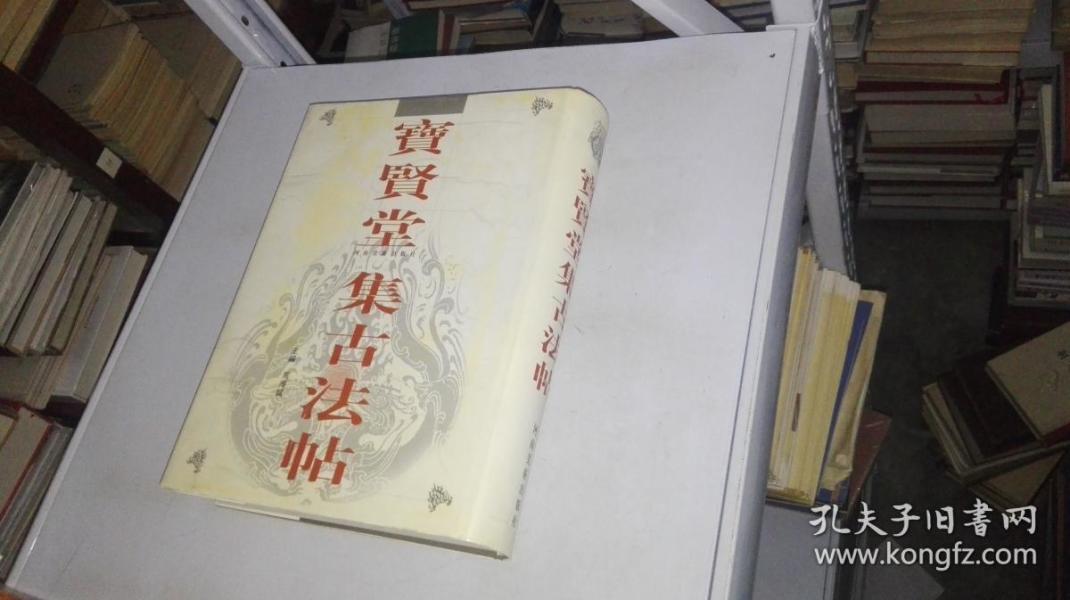 寶賢堂集古法帖
主編
寶賢堂集古法帖
孔夫子旧书网
www.kongfz.com